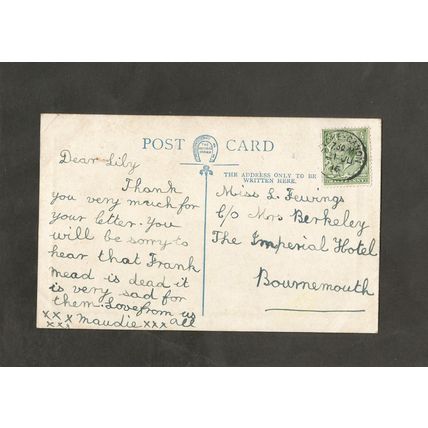 POST CARD
THE ADDRESS ONLY TO BE
WRITTEN HERE.
Dear Lily
Thank
you very much for
your letter. You
will be sorry to
hear that Frank
mead is dead it
is very sad for
them. Love from us
xxx maudie xxx all
xxx
Miss L. Fewings
C/o Mrs Berkeley
The Imperial Hotel
Bournemouth